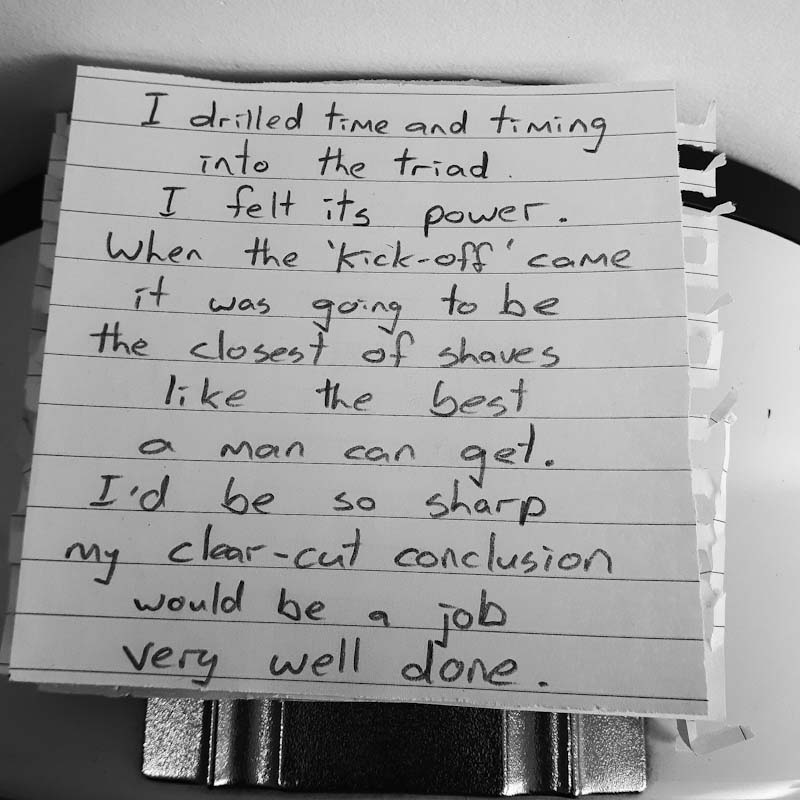 I drilled time and timing
into the triad.
I felt its power.
When the 'kick-off' came
it was going to be
the closest of shaves
like the best
a man can get.
I'd be so sharp
my clear-cut conclusion
would be a job
very well done.